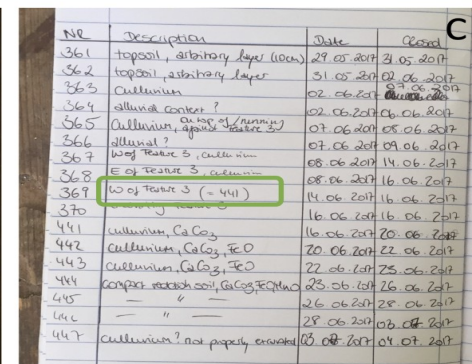 C
NR Description Date Closed
361 topsoil, arbitrary layer (10cm) 29.05.2017 31.05.2017
362 topsoil, arbitrary layer 31.05.2017 02.06.2017
363 culluvium 02.06.2017 07.06.2017
364 alluvial content? 02.06.2017 06.06.2017
365 Culluvium, on top of / running against Feature 3 07.06.2017 08.06.2017
366 alluvial? 07.06.2017 09.06.2017
367 W of Feature 3, culluvium 08.06.2017 14.06.2017
368 E of Feature 3, culluvium 08.06.2017 16.06.2017
369 W of Feature 3 (= 441) 14.06.2017 16.06.2017
370 16.06.2017 16.06.2017
441 culluvium, CaCo3 16.06.2017 20.06.2017
442 culluvium, CaCo3, FeO 20.06.2017 22.06.2017
443 culluvium, CaCo3, FeO 22.06.2017 23.06.2017
444 compact reddish soil, CaCo3, FeO, MnO 23.06.2017 26.06.2017
445 — " — 26.06.2017 28.06.2017
446 — " — 28.06.2017 03.07.2017
447 culluvium? not properly excavated 03.07.2017 04.07.2017